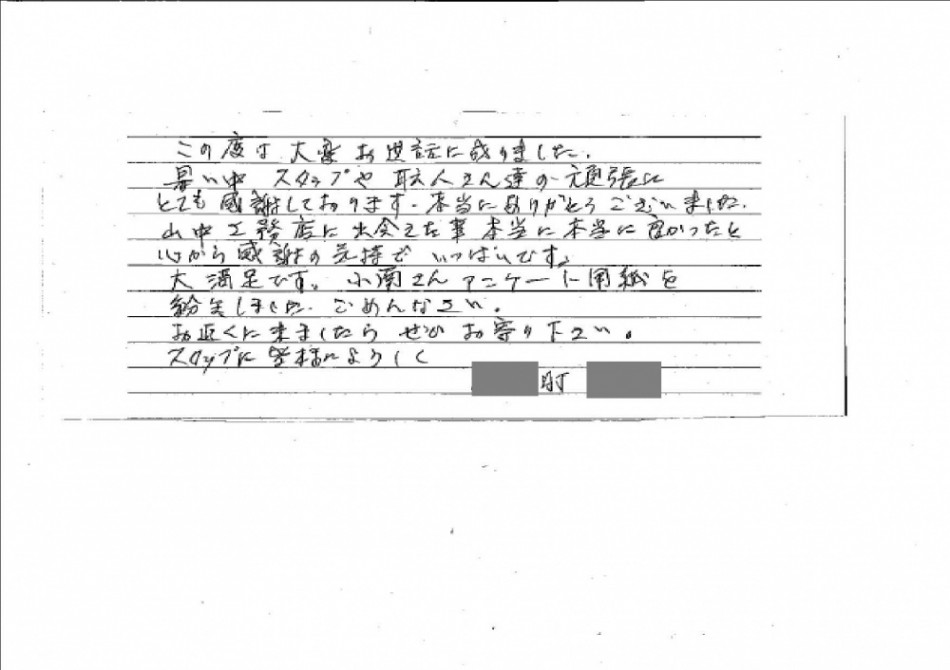 この度は大変お世話に成りました.
暑い中 スタッフや職人さん達の頑張に
とても感謝しております.本当にありがとうございました.
山中工務店に出会えた事本当に本当に良かったと
心から感謝の気持でいっぱいです。
大満足です。小関さんアンケート用紙を
紛失しました.ごめんなさい.
お近くに来ましたらぜひお寄り下さい。
スタッフに皆様によろしく
町